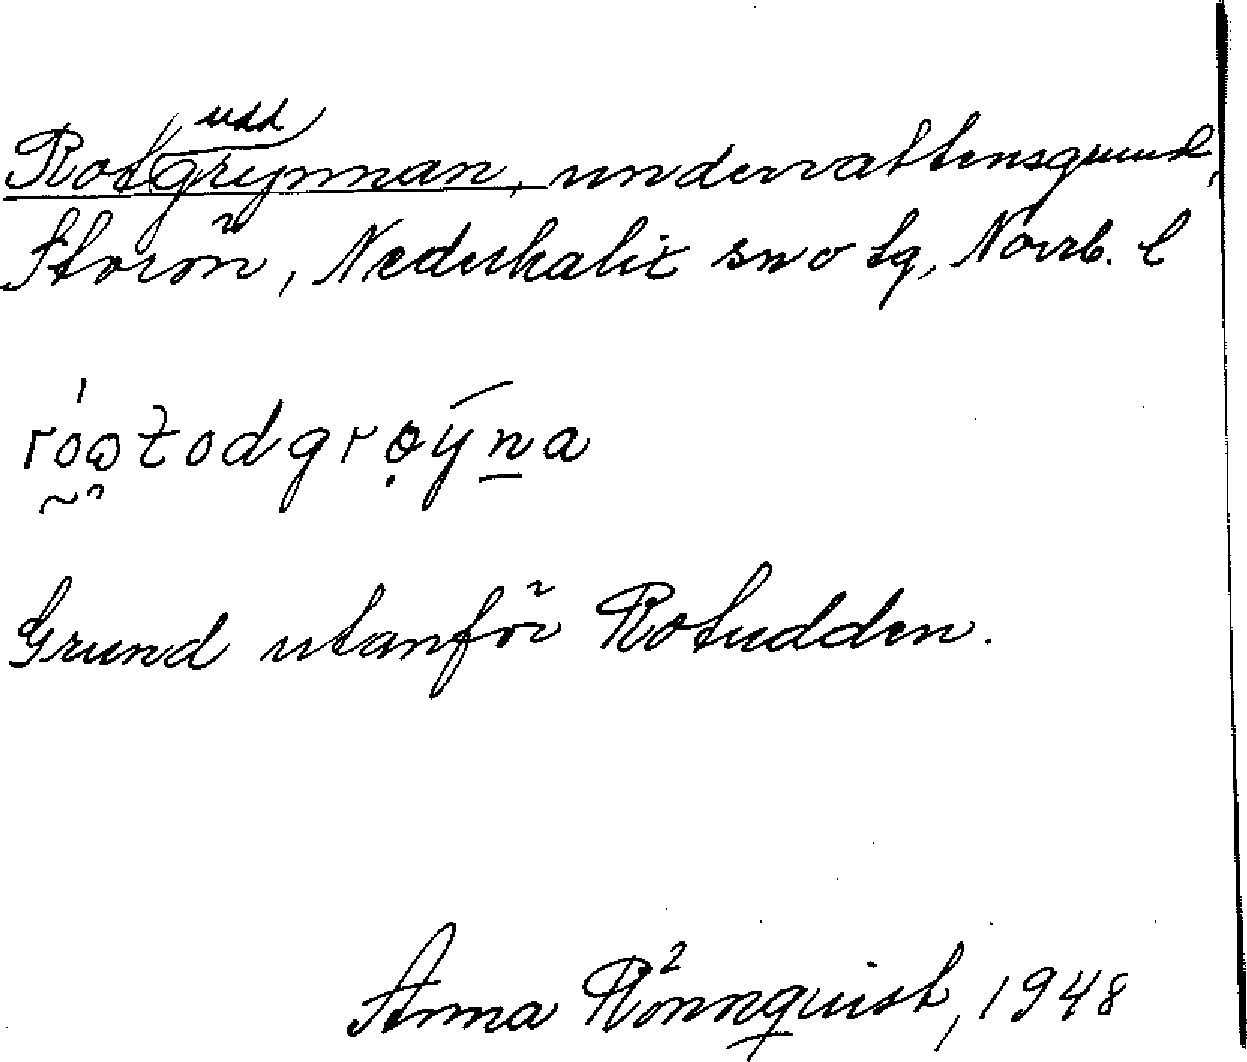 Rotuddgrynnan, undervattensgrund,
Storön, Nederkalix sn o tg, Norrb. l
Grund utanför Rotudden.
Anna Rönnquist, 1948